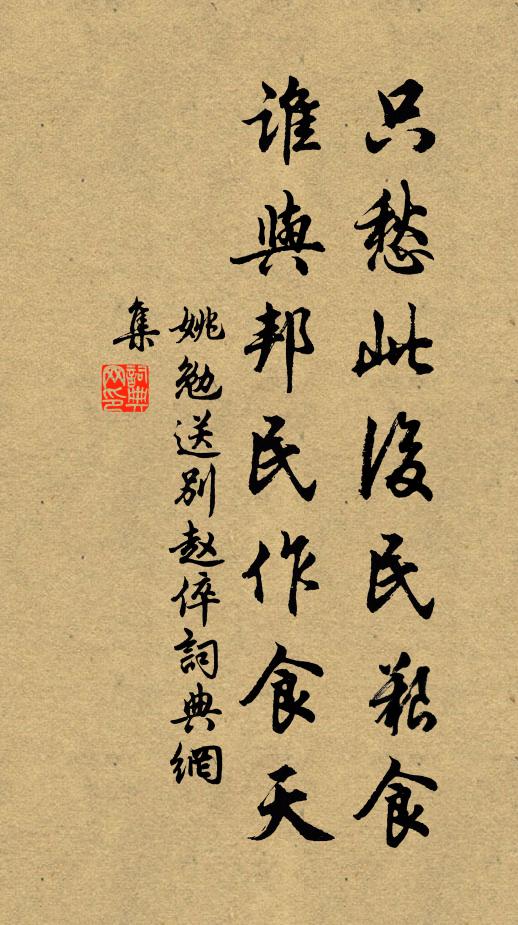 只愁此後民艱食
誰與邦民作食天
姚勉送别赵倅詞典網
集
詞典
网印